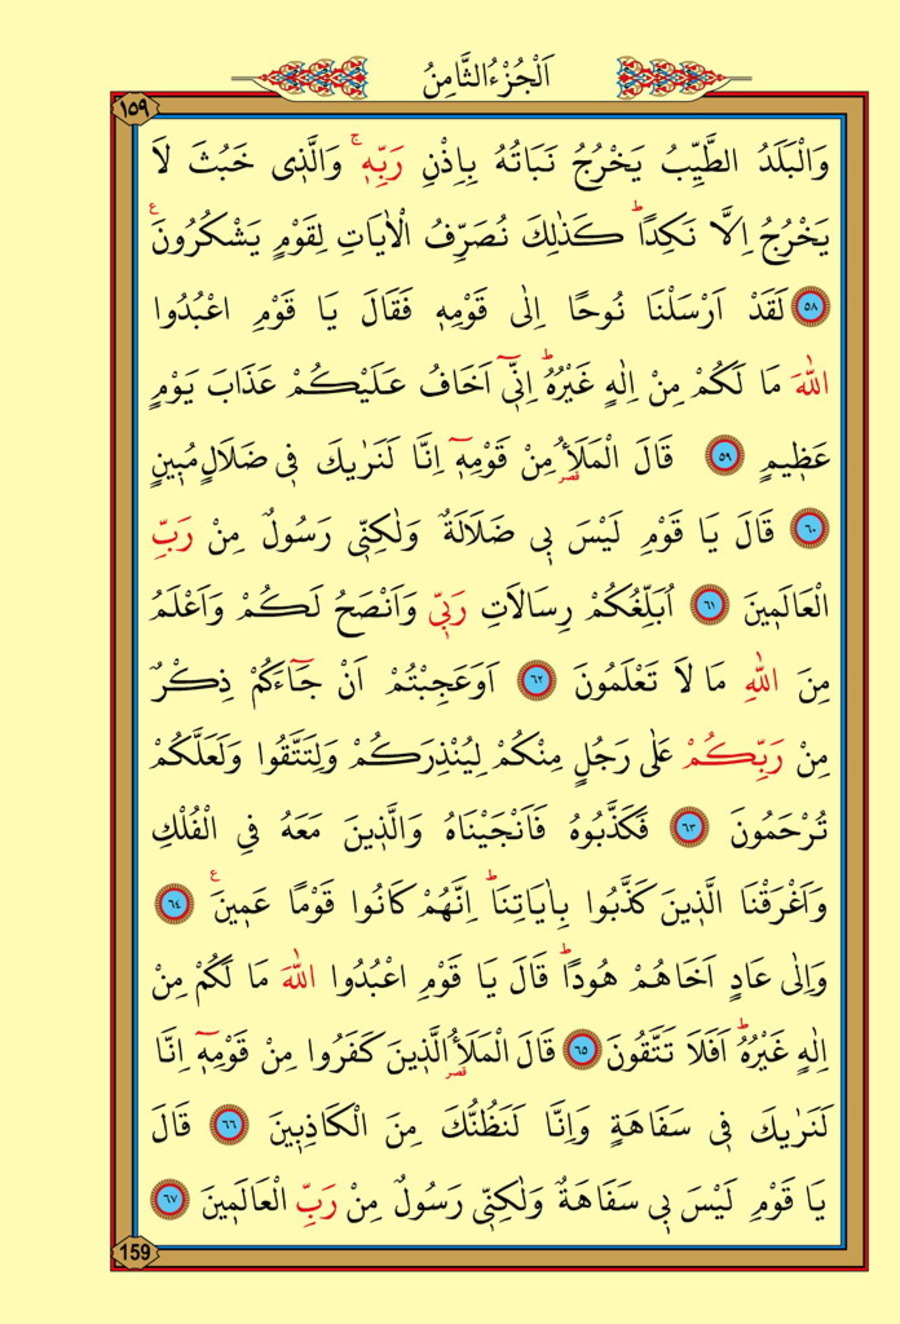 اَلْجُزْءُ الثَّامِنُ
١٥٩
وَالْبَلَدُ الطَّيِّبُ يَخْرُجُ نَبَاتُهُ بِاِذْنِ رَبِّهٖۚ وَالَّذٖى خَبُثَ لَا
يَخْرُجُ اِلَّا نَكِدًاؕ كَذٰلِكَ نُصَرِّفُ الْاٰيَاتِ لِقَوْمٍ يَشْكُرُونَࣖ
٥٨ لَقَدْ اَرْسَلْنَا نُوحًا اِلٰى قَوْمِهٖ فَقَالَ يَا قَوْمِ اعْبُدُوا
اللّٰهَ مَا لَكُمْ مِنْ اِلٰهٍ غَيْرُهُؕ اِنّٖٓى اَخَافُ عَلَيْكُمْ عَذَابَ يَوْمٍ
عَظٖيمٍ ٥٩ قَالَ الْمَلَأُ مِنْ قَوْمِهٖٓ اِنَّا لَنَرٰيكَ فٖى ضَلَالٍ مُبٖينٍ
٦٠ قَالَ يَا قَوْمِ لَيْسَ بٖى ضَلَالَةٌ وَلٰكِنّٖى رَسُولٌ مِنْ رَبِّ
الْعَالَمٖينَ ٦١ اُبَلِّغُكُمْ رِسَالَاتِ رَبّٖى وَاَنْصَحُ لَكُمْ وَاَعْلَمُ
مِنَ اللّٰهِ مَا لَا تَعْلَمُونَ ٦٢ اَوَعَجِبْتُمْ اَنْ جَٓاءَكُمْ ذِكْرٌ
مِنْ رَبِّكُمْ عَلٰى رَجُلٍ مِنْكُمْ لِيُنْذِرَكُمْ وَلِتَتَّقُوا وَلَعَلَّكُمْ
تُرْحَمُونَ ٦٣ فَكَذَّبُوهُ فَاَنْجَيْنَاهُ وَالَّذٖينَ مَعَهُ فِى الْفُلْكِ
وَاَغْرَقْنَا الَّذٖينَ كَذَّبُوا بِاٰيَاتِنَاؕ اِنَّهُمْ كَانُوا قَوْمًا عَمٖينَࣖ ٦٤
وَاِلٰى عَادٍ اَخَاهُمْ هُودًاؕ قَالَ يَا قَوْمِ اعْبُدُوا اللّٰهَ مَا لَكُمْ مِنْ
اِلٰهٍ غَيْرُهُؕ اَفَلَا تَتَّقُونَ ٦٥ قَالَ الْمَلَأُ الَّذٖينَ كَفَرُوا مِنْ قَوْمِهٖٓ اِنَّا
لَنَرٰيكَ فٖى سَفَاهَةٍ وَاِنَّا لَنَظُنُّكَ مِنَ الْكَاذِبٖينَ ٦٦ قَالَ
يَا قَوْمِ لَيْسَ بٖى سَفَاهَةٌ وَلٰكِنّٖى رَسُولٌ مِنْ رَبِّ الْعَالَمٖينَ ٦٧
159